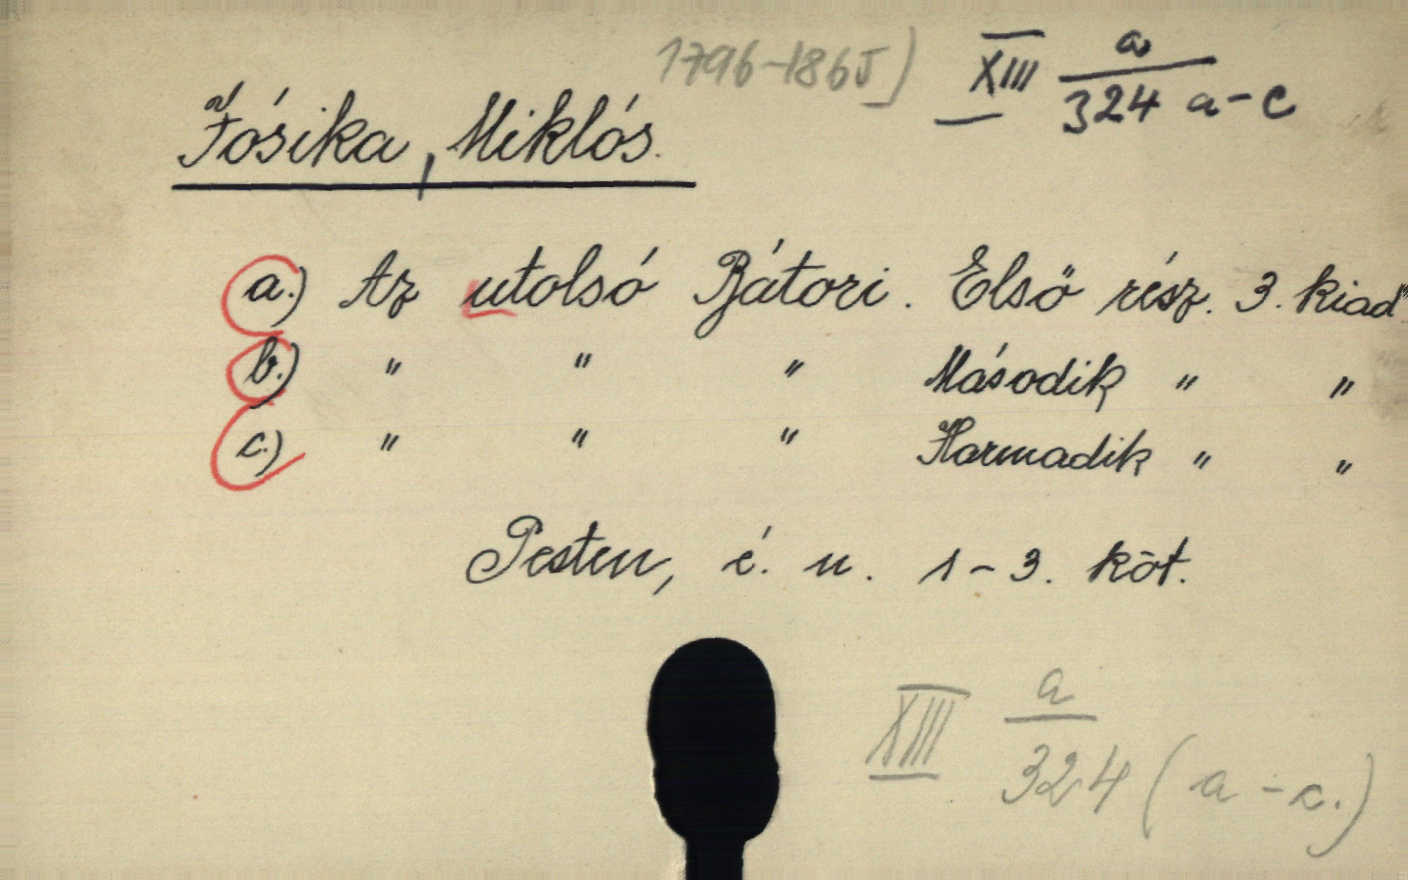 1796-1865) XIII a
324 a-c
Jósika, Miklós.
a.) Az utolsó Bátori. Első rész. 3. kiad.
b.) " " " Második " "
c.) " " " Harmadik " "
Pesten, é. n. 1-3. köt.
XIII a
324 (a-c.)